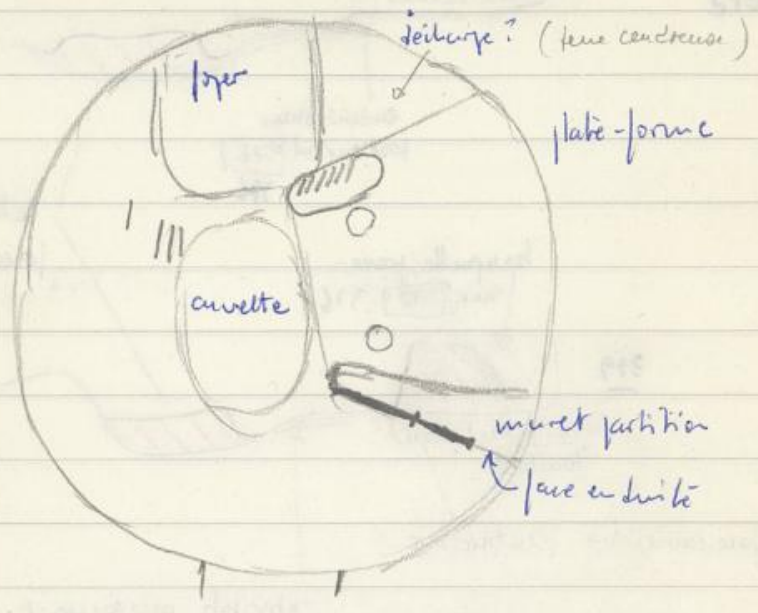 décharge ? (terre cendreuse)
foyer
plate-forme
cuvette
muret partition
face enduite